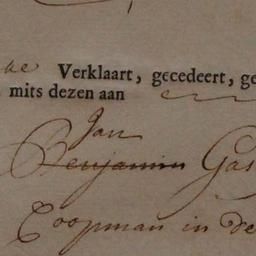 Verklaart, gecedeert, ge
mits dezen aan en
Jan
Benjamin Gas
Coopman in de